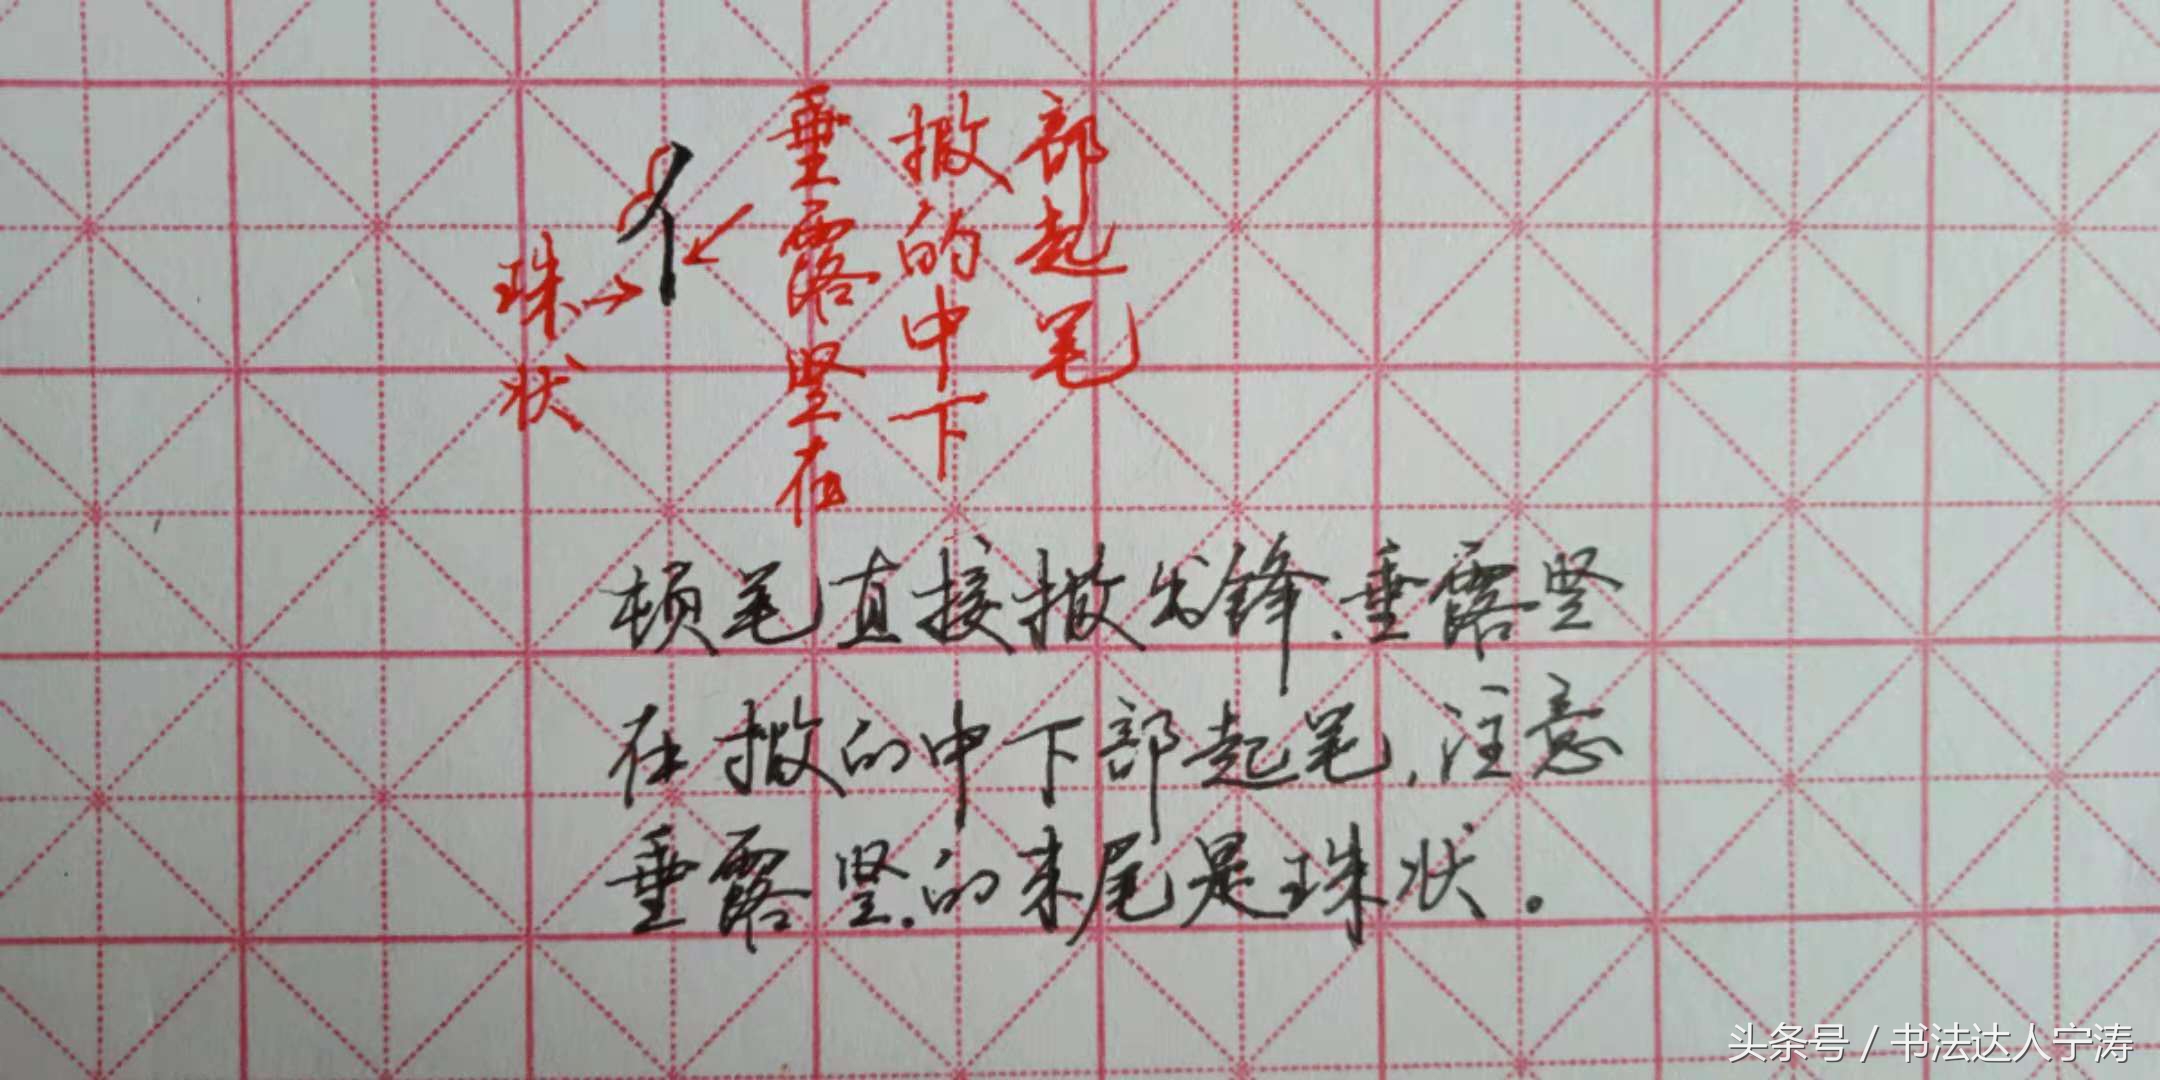 亻
珠状
垂露竖在
撇的中下
部起笔
顿笔直接撇出锋.垂露竖
在撇的中下部起笔,注意
垂露竖.的末尾是珠状。
头条号 / 书法达人宁涛